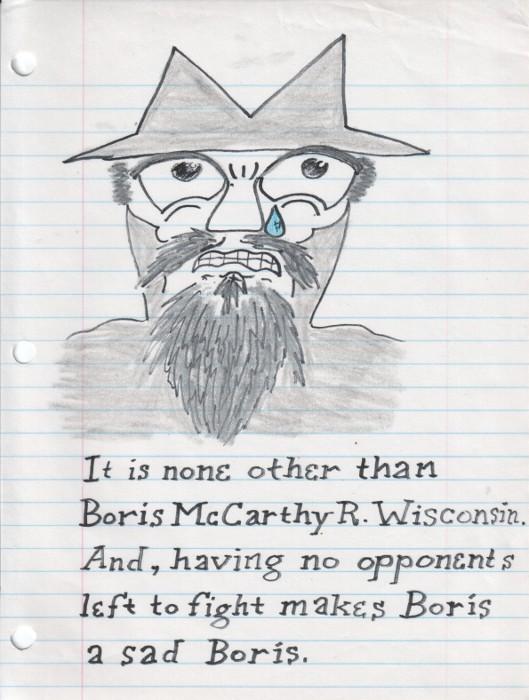 It is none other than
Boris McCarthy R. Wisconsin.
And, having no opponents
left to fight makes Boris
a sad Boris.